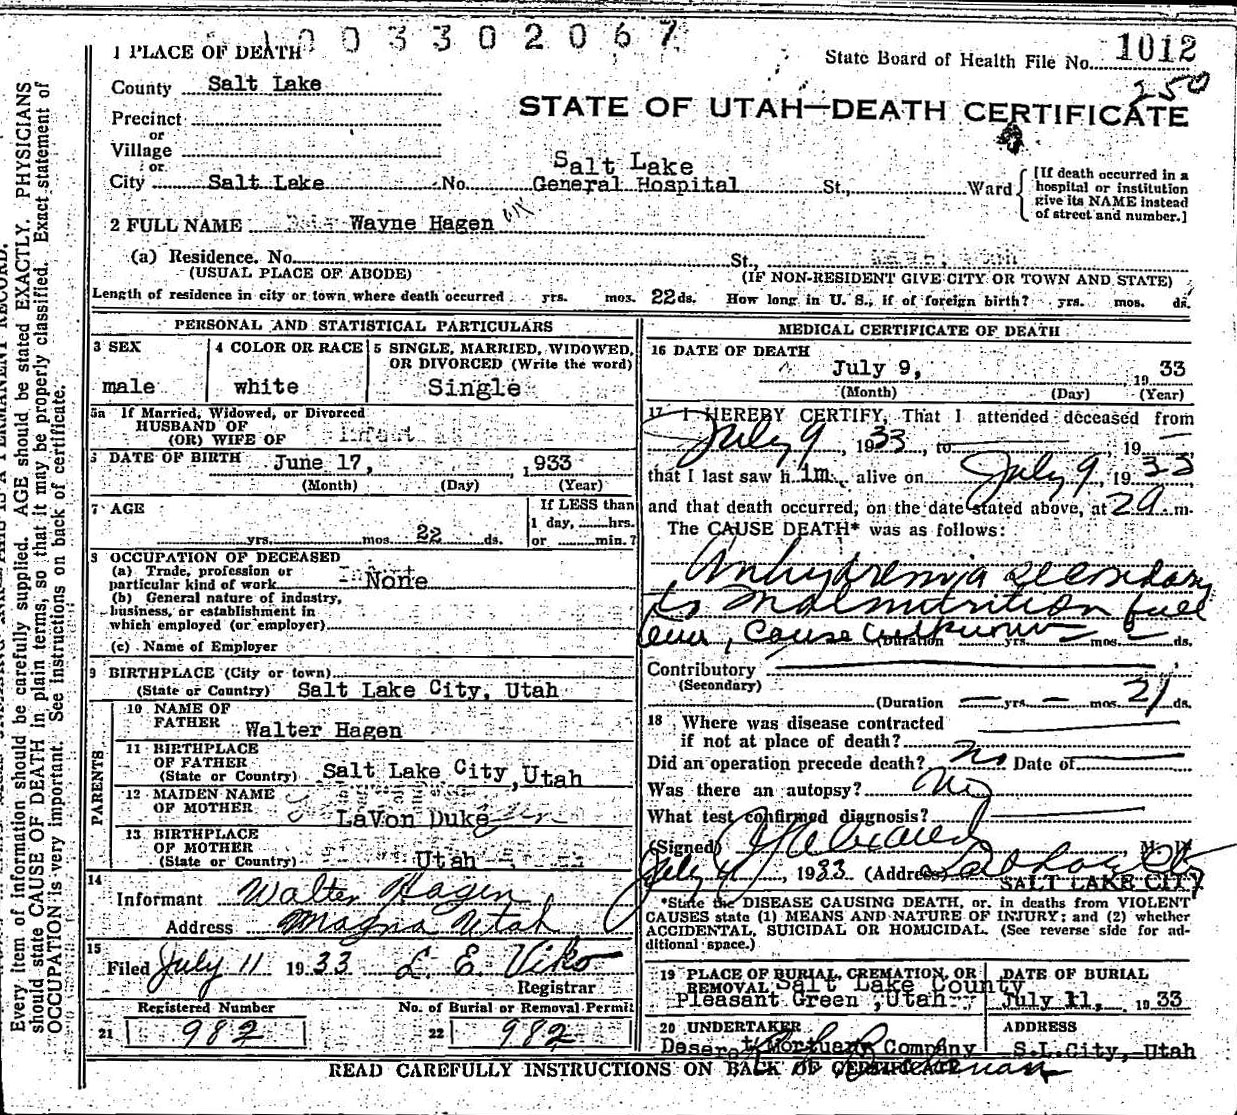 1003302067
1 PLACE OF DEATH
State Board of Health File No. 1012
250
County Salt Lake
STATE OF UTAH—DEATH CERTIFICATE
Precinct
or
Village
or
City Salt Lake No. Salt Lake General Hospital St., Ward
[If death occurred in a hospital or institution give its NAME instead of street and number.]
2 FULL NAME Wayne Hagen
(a) Residence. No. St.,
(USUAL PLACE OF ABODE) (IF NON-RESIDENT GIVE CITY OR TOWN AND STATE)
Length of residence in city or town where death occurred yrs. mos. 22 ds. How long in U. S., if of foreign birth? yrs. mos. ds.
PERSONAL AND STATISTICAL PARTICULARS
3 SEX
male
4 COLOR OR RACE
white
5 SINGLE, MARRIED, WIDOWED, OR DIVORCED (Write the word)
Single
5a If Married, Widowed, or Divorced
HUSBAND OF
(OR) WIFE OF Infant
6 DATE OF BIRTH June 17, 1933
(Month) (Day) (Year)
7 AGE
yrs. mos. 22 ds.
If LESS than
1 day, hrs.
or min.?
8 OCCUPATION OF DECEASED
(a) Trade, profession or
particular kind of work None
(b) General nature of industry,
business, or establishment in
which employed (or employer)
(c) Name of Employer
9 BIRTHPLACE (City or town)
(State or Country) Salt Lake City, Utah
PARENTS
10 NAME OF
FATHER Walter Hagen
11 BIRTHPLACE
OF FATHER
(State or Country) Salt Lake City, Utah
12 MAIDEN NAME
OF MOTHER
LaVon Duke
13 BIRTHPLACE
OF MOTHER
(State or Country) Utah
14
Informant Walter Hagen
Address Magna Utah
15
Filed July 11 1933 L. E. Viko
Registrar
Registered Number No. of Burial or Removal Permit
21 982 22 982
MEDICAL CERTIFICATE OF DEATH
16 DATE OF DEATH
July 9, 1933
(Month) (Day) (Year)
17 I HEREBY CERTIFY, That I attended deceased from
July 9, 1933, to 19
that I last saw him alive on July 9, 1933,
and that death occurred, on the date stated above, at 2 a m.
The CAUSE DEATH* was as follows:
Anhydremia secondary
to malnutrition
Cause unknown (Duration yrs. mos. ds.
Contributory
(Secondary)
(Duration yrs. mos. 21 ds.
18 Where was disease contracted
if not at place of death?
Did an operation precede death? no Date of
Was there an autopsy? no
What test confirmed diagnosis?
(Signed) M. D.
July 1933 (Address)
SALT LAKE CITY
*State the DISEASE CAUSING DEATH, or, in deaths from VIOLENT
CAUSES state (1) MEANS AND NATURE OF INJURY; and (2) whether
ACCIDENTAL, SUICIDAL OR HOMICIDAL. (See reverse side for ad-
ditional space.)
19 PLACE OF BURIAL, CREMATION, OR
REMOVAL Salt Lake County
Pleasant Green, Utah
DATE OF BURIAL
July 11, 1933
20 UNDERTAKER
Deseret Mortuary Company
ADDRESS
S.L.City, Utah
READ CAREFULLY INSTRUCTIONS ON BACK OF CERTIFICATE
Every item of information should be carefully supplied. AGE should be stated EXACTLY. PHYSICIANS
should state CAUSE OF DEATH in plain terms, so that it may be properly classified. Exact statement of
OCCUPATION is very important. See instructions on back of certificate.